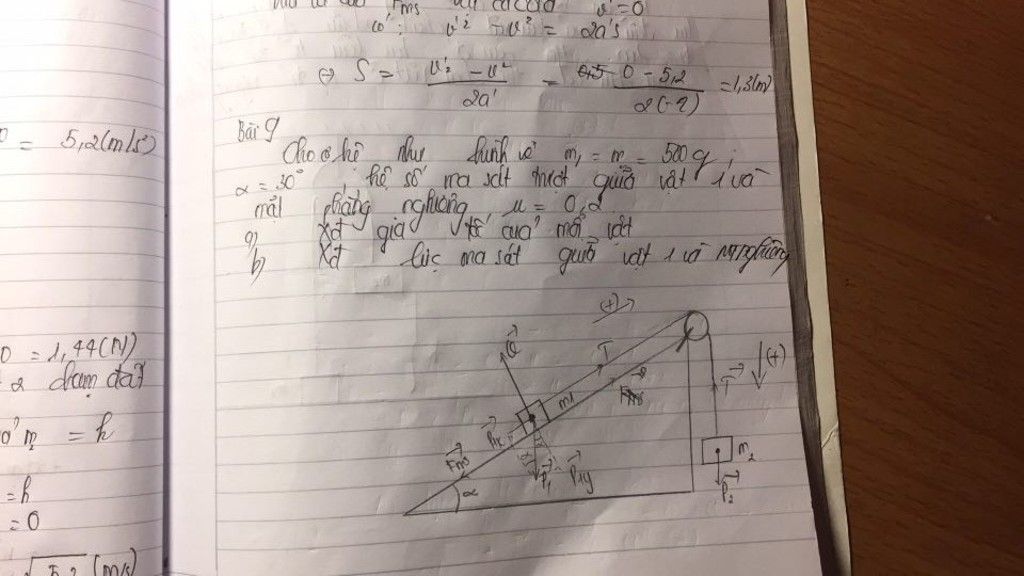 F_ms
v' = 0
v'² - v² = 2a's
⇔ S = (v'² - v²)/2a' = (0 - 5,2)/2(-2) = 1,3(m)
= 5,2(m/s)
Bài 9
Cho cơ hệ như hình vẽ m₁ = m = 500g ;
α = 30° hệ số ma sát trượt giữa vật 1 và
mặt phẳng nghiêng μ = 0,2
a) gia tốc của mỗi vật
b) lực ma sát giữa vật 1 và
= 1,44(N)
2 chạm đất
m₂ = h
= h
= 0
√5,2 (m/s)
(+)
Q
T
(+)
m₁
Fms
T
P₁ₓ
m₂
Fms
α
P₁
P₁y
P₂
α